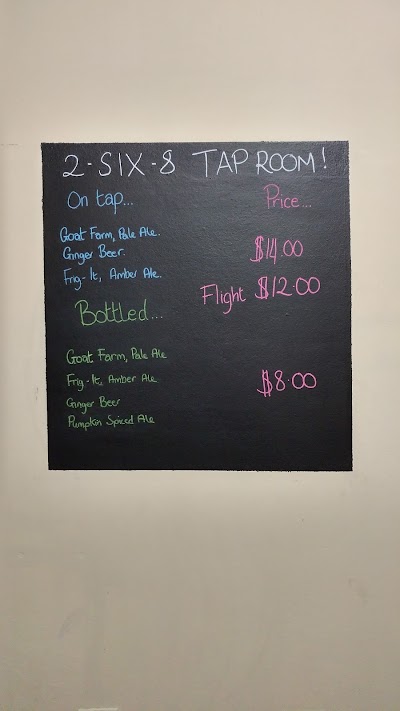 2-SIX-8 TAP ROOM!
On tap... Price...
Goat Farm, Pale Ale.
Ginger Beer. $14.00
Frig-It, Amber Ale.
Flight $12.00
Bottled...
Goat Farm, Pale Ale
Frig-It, Amber Ale $8.00
Ginger Beer
Pumpkin Spiced Ale